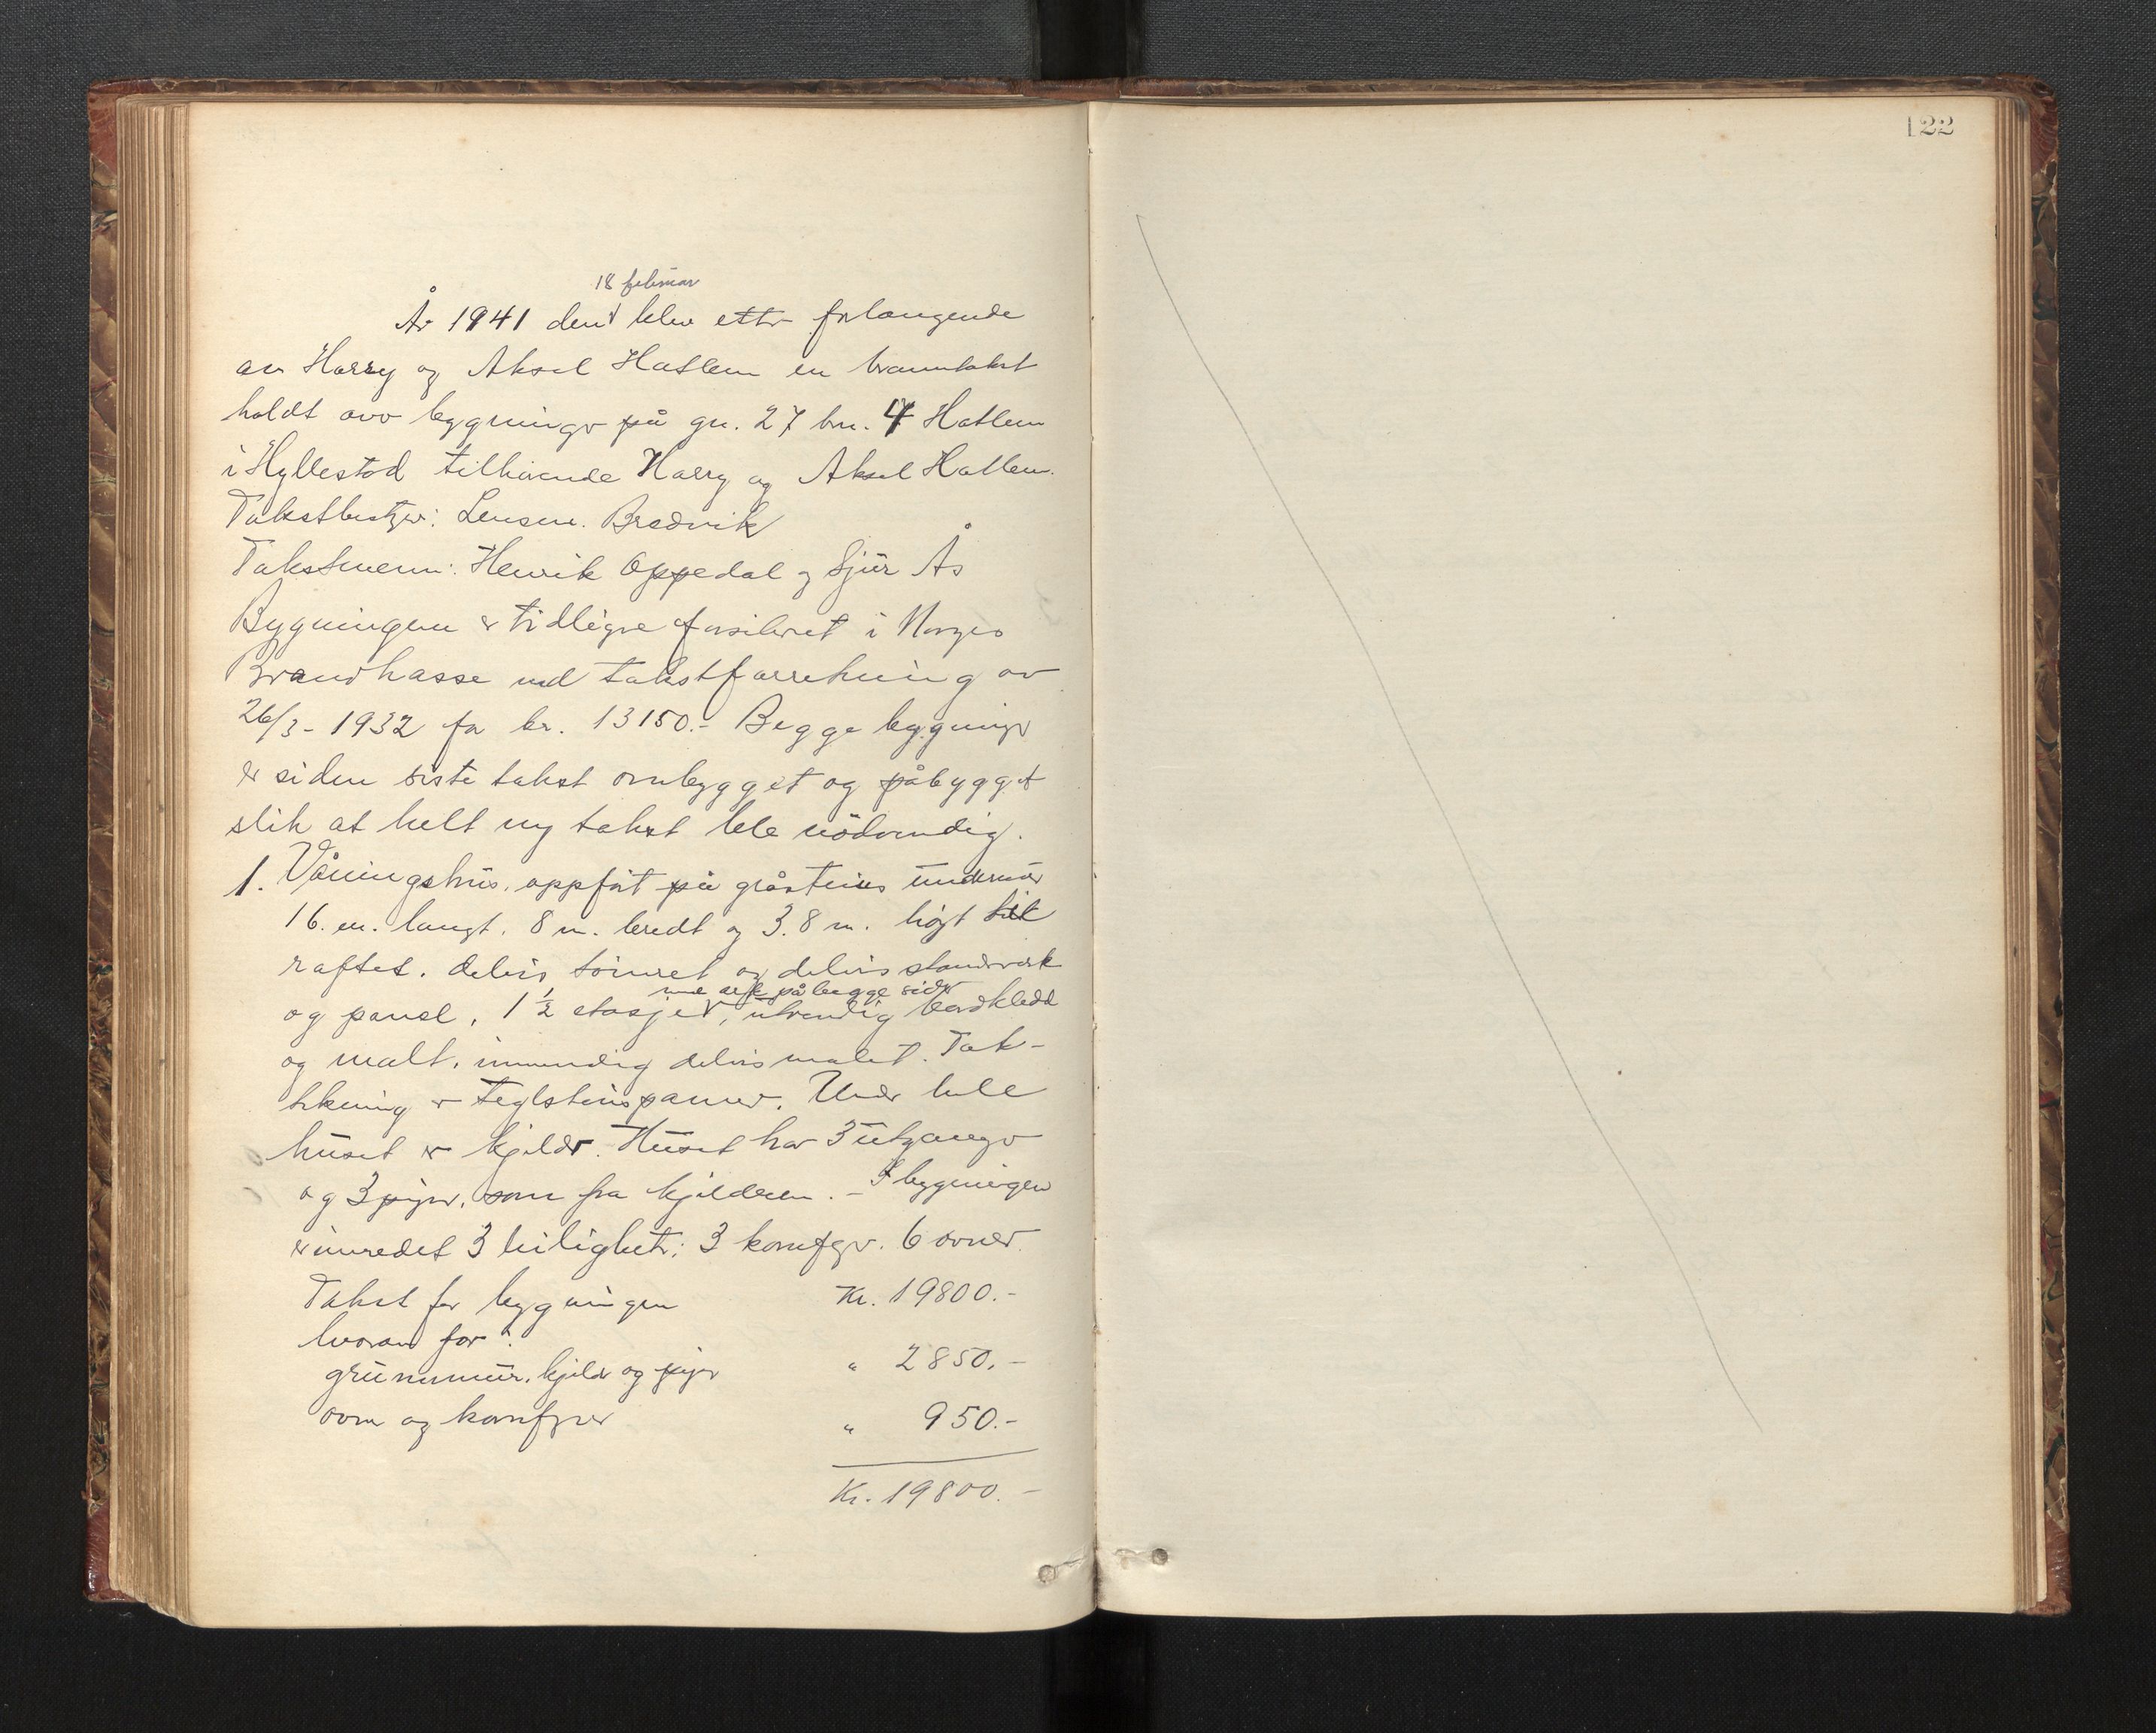 122
18 februar
År 1941 den blev etter forlangende
av Harry og Aksel Hatlem en branntakst
holdt over bygninger på gn. 27 bn. 4 Hatlem
i Hyllestad tilhørende Harry og Aksel Hatlem.
Takstbestyrer: Lensm. Bredvik
Takstmenn: Henrik Oppedal og Sjur Ås
Bygningen er tidligere forsikret i Norges
Brandkasse ved takstforretning av
26/3-1932 for kr. 13150.- Begge bygninger
er siden siste takst ombygget og påbygget
slik at helt ny takst ble nödvendig.
1. Våningshus, oppført på gråsteins undermur
16. m. langt, 8 m. bredt og 3.8 m. højt til
raftet, delvis tømret og delvis standverk
med ark på begge sider
og panel, 1 ½ etasjer, utvendig bordkledd
og malt, innvendig delvis malet. Tak-
tekning er teglsteinspanner. Under hele
huset er kjelder. Huset har 3 utganger
og 3 piper, som fra kjelderen. - I bygningen
er innredet 3 leiligheter: 3 komfyrer. 6 ovner
Takst for bygningen Kr. 19800.-
hvorav for:
grunnmur, kjelder og piper " 2850.-
ovner og komfyrer " 950.-
Kr. 19800.-